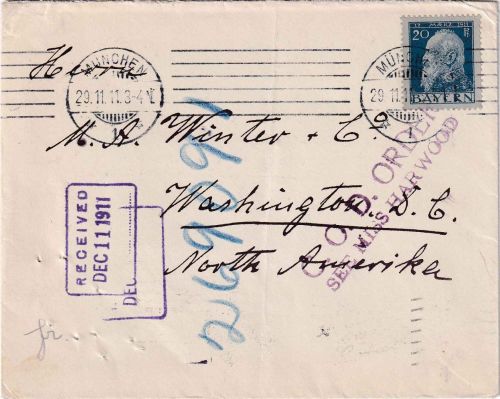 12. MÄRZ 1911
20 Pf
BAYERN
MÜNCHEN
29.11.11.3-4 V.
1
MÜNCHEN
29.11.1
1
Herrn
M. A. Winter + Co
Washington. D.C.
North Amerika
RECEIVED
DEC 11 1911
DEC
C. O. D. ORDER
SEE MISS HARWOOD
269291
fr.